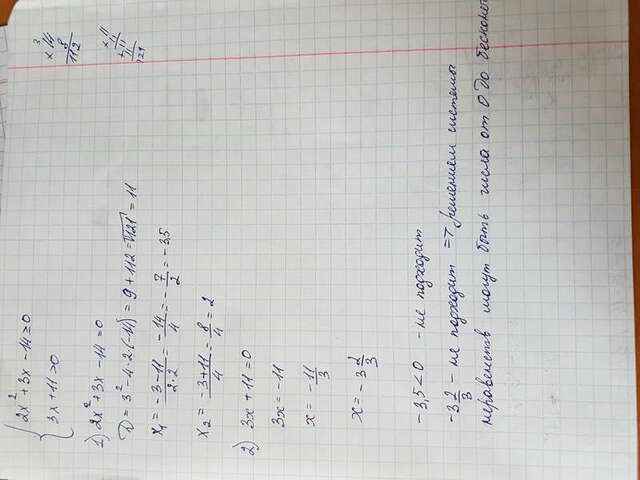 2x² + 3x - 14 ≥ 0
3x + 11 > 0
1) 2x² + 3x - 14 = 0
D = 3² - 4·2·(-14) = 9 + 112 = √121 = 11
x₁ = (-3-11)/(2·2) = -14/4 = -7/2 = -3,5
x₂ = (-3+11)/4 = 8/4 = 2
2) 3x + 11 = 0
3x = -11
x = -11/3
x = -3 2/3
-3,5 < 0 - не подходит
-3 2/3 - не подходит => решением системы
неравенств могут быть числа от 0 до
3
× 14
8
112
× 11
11
+ 11
11
121